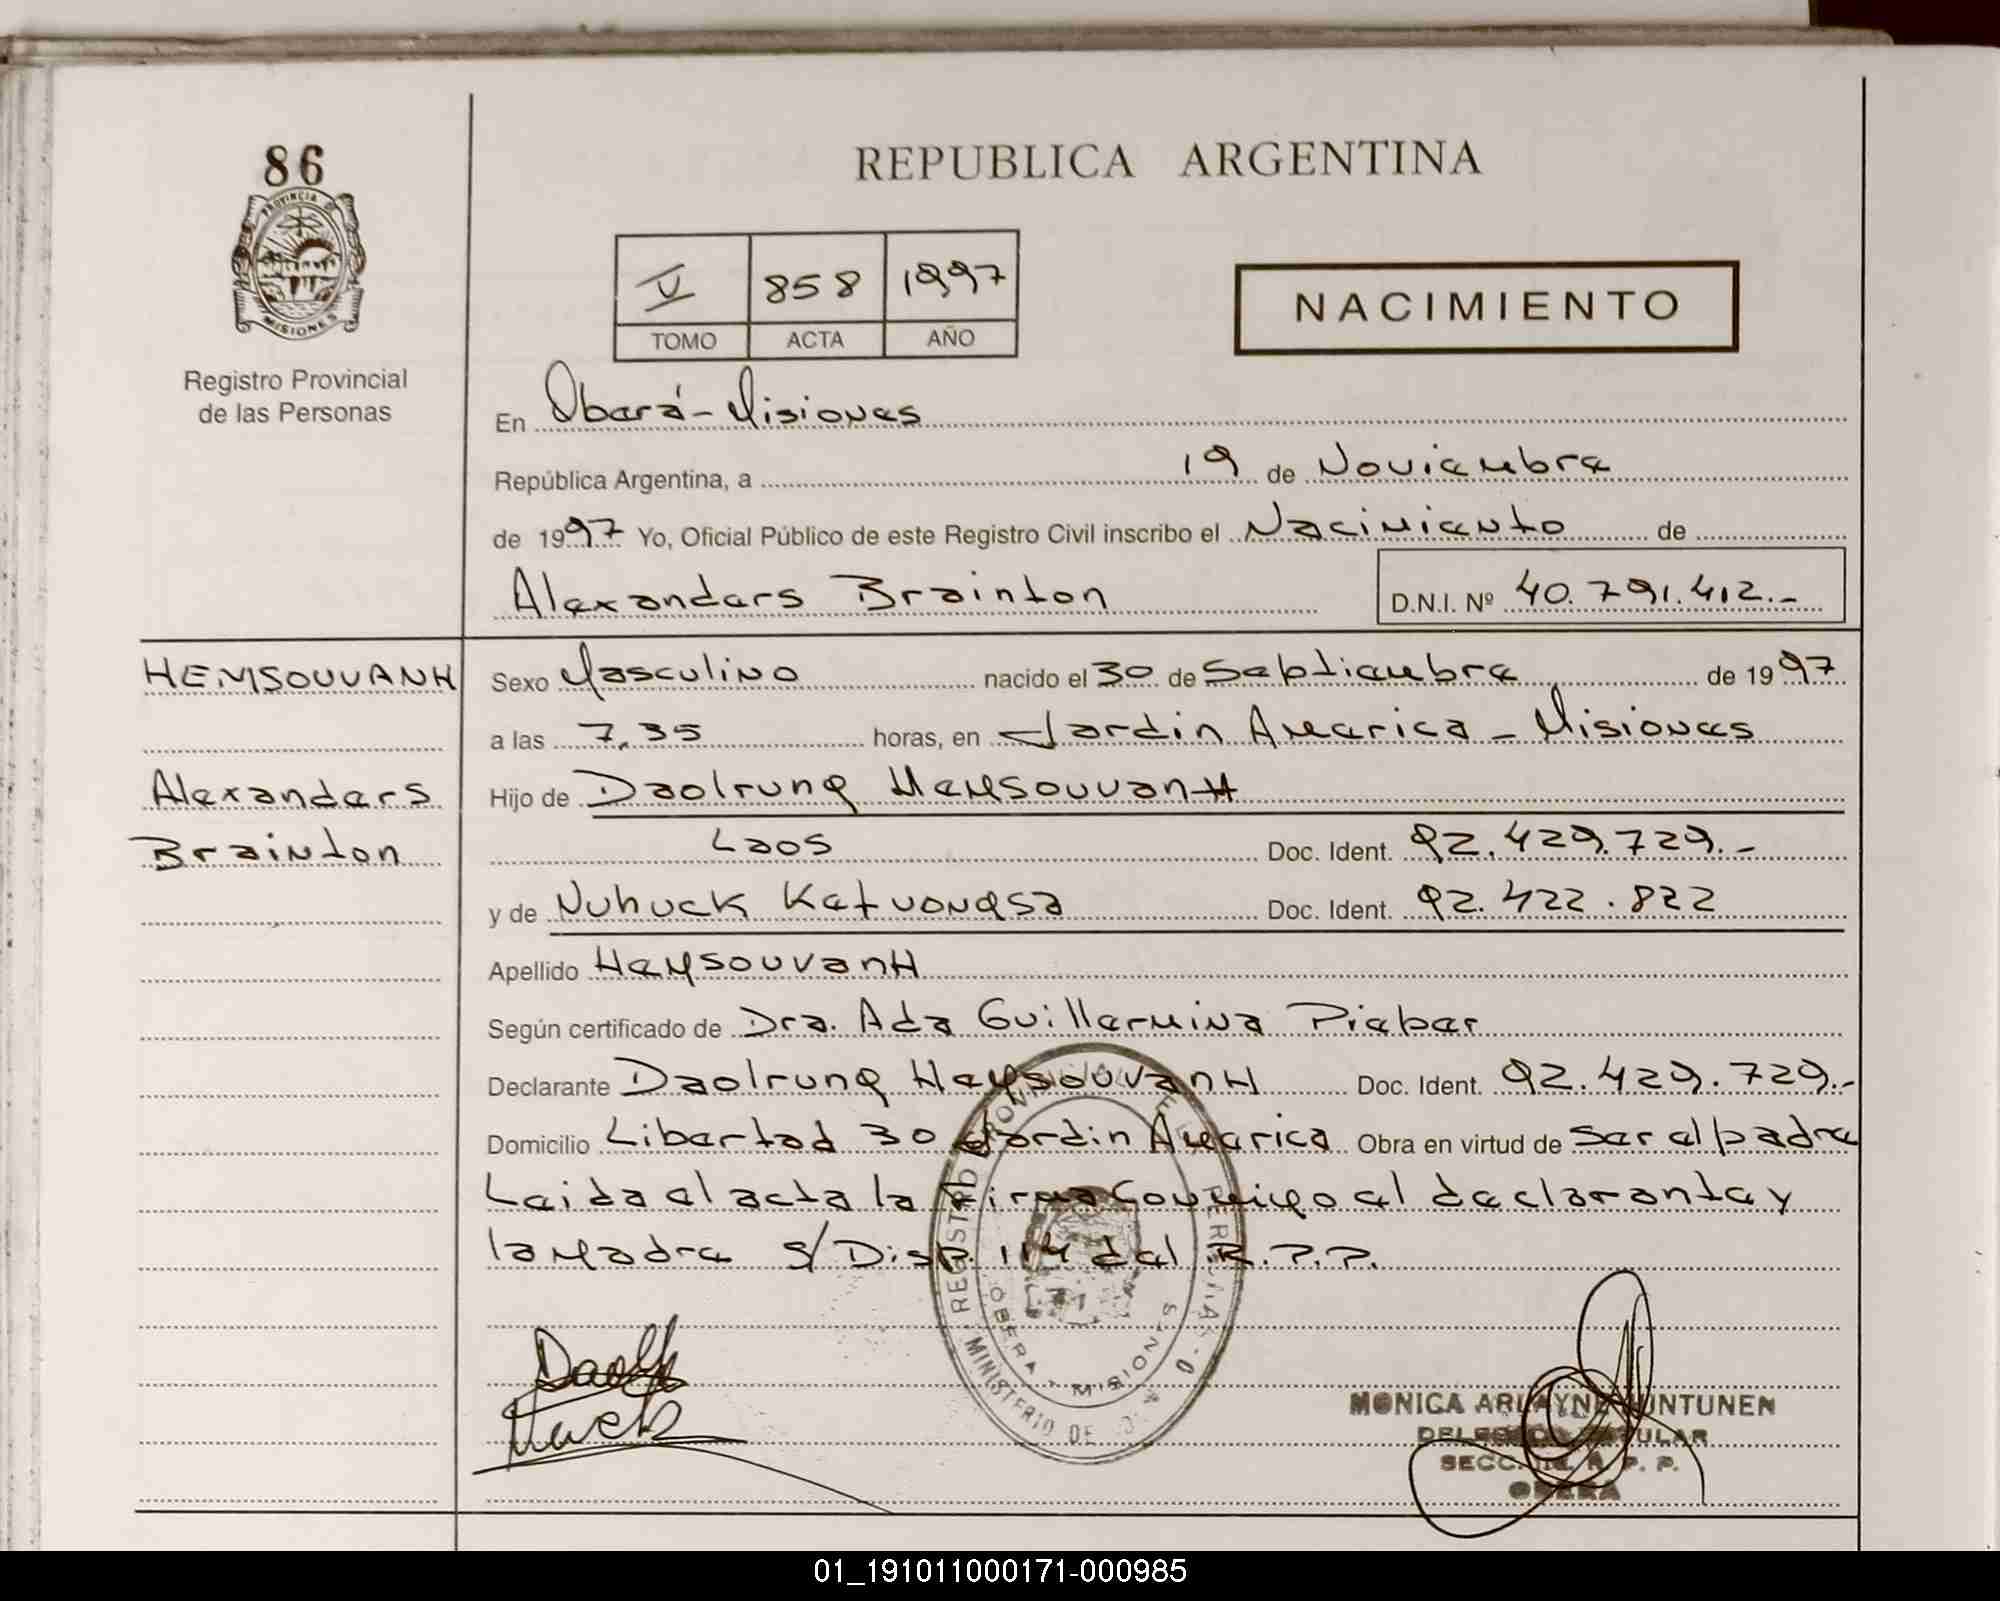 86
PROVINCIA D
MISIONES
Registro Provincial
de las Personas
REPUBLICA ARGENTINA
V 858 1997
TOMO ACTA AÑO
NACIMIENTO
En Oberá - Misiones
República Argentina, a 19 de Noviembre
de 1997 Yo, Oficial Público de este Registro Civil inscribo el Nacimiento de
Alexanders Brainton D.N.I. Nº 40.791.412.-
HEMSOUVANH
Alexanders
Brainton
Sexo Masculino nacido el 30 de Sebtiembre de 1997
a las 7,35 horas, en Jardin America - Misiones
Hijo de Daolrung HemsouvanH
Laos Doc. Ident. 92.429.729.-
y de Nuhuck Ketvongsa Doc. Ident. 92.422.822
Apellido HemsouvanH
Según certificado de Dra. Ada Guillermina Pieber
Declarante Daolrung HemsouvanH Doc. Ident. 92.429.729.-
Domicilio Libertad 30 Jardin America Obra en virtud de ser el padre
Leida el acta la firma conmigo el declarante y
la madre s/ Disp. 114 del R.P.P.
REGISTRO PROVINCIAL DE PERSONAS
MINISTERIO DE
OBERA - MISIONES
MONICA ARLAYNE UNTUNEN
SECC. R. P. P.
OBERA
01_191011000171-000985